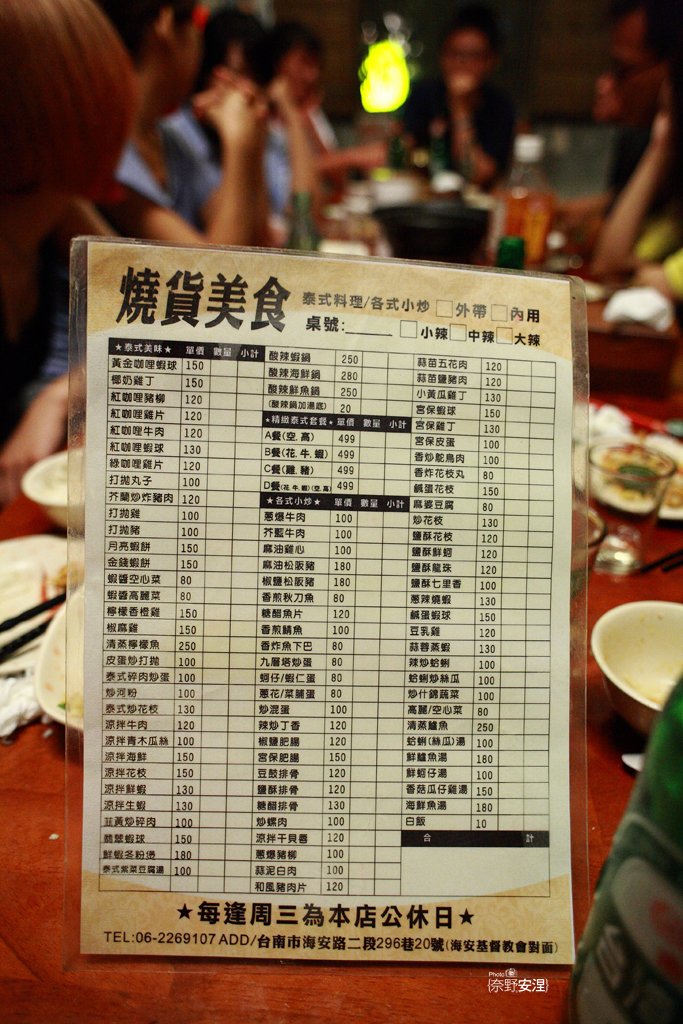 燒貨美食
泰式料理/各式小炒 □外帶□內用
桌號:______ □小辣□中辣□大辣
★泰式美味★ 單價 數量 小計
黃金咖哩蝦球 150
椰奶雞丁 150
紅咖哩豬柳 120
紅咖哩雞片 120
紅咖哩牛肉 120
紅咖哩蝦球 130
綠咖哩雞片 120
打拋丸子 100
芥蘭炒炸豬肉 120
打拋雞 100
打拋豬 100
月亮蝦餅 150
金錢蝦餅 150
蝦醬空心菜 80
蝦醬高麗菜 80
檸檬香橙雞 150
椒麻雞 150
清蒸檸檬魚 250
皮蛋炒打拋 100
泰式碎肉炒蛋 100
炒河粉 100
泰式炒花枝 130
涼拌牛肉 120
涼拌青木瓜絲 100
涼拌海鮮 150
涼拌花枝 150
涼拌鮮蝦 130
涼拌生蝦 130
韭黃炒碎肉 100
翡翠蝦球 150
鮮蝦冬粉煲 180
泰式紫菜豆腐湯 100
酸辣蝦鍋 250
酸辣海鮮鍋 280
酸辣鮮魚鍋 250
(酸辣鍋加湯底) 20
★精緻泰式套餐★ 單價 數量 小計
A餐(空.高) 499
B餐(花.牛.蝦) 499
C餐(雞.豬) 499
D餐(花.牛.蝦)(空.高) 499
★各式小炒★ 單價 數量 小計
蔥爆牛肉 100
芥藍牛肉 100
麻油雞心 100
麻油松阪豬 180
椒鹽松阪豬 180
香煎秋刀魚 80
糖醋魚片 120
香煎鯖魚 100
香炸魚下巴 80
九層塔炒蛋 80
蚵仔/蝦仁蛋 80
蔥花/菜脯蛋 80
炒混蛋 100
辣炒丁香 120
椒鹽肥腸 150
宮保肥腸 150
豆鼓排骨 120
鹽酥排骨 120
糖醋排骨 130
炒螺肉 100
涼拌干貝唇 120
蔥爆豬柳 100
蒜泥白肉 100
和風豬肉片 120
蒜苗五花肉 120
蒜苗鹽豬肉 120
小黃瓜雞丁 130
宮保蝦球 150
宮保雞丁 130
宮保皮蛋 100
香炒鴕鳥肉 100
香炸花枝丸 80
鹹蛋花枝 150
麻婆豆腐 80
炒花枝 130
鹽酥花枝 120
鹽酥鮮蚵 120
鹽酥龍珠 120
鹽酥七里香 100
蔥辣燒蝦 130
鹹蛋蝦球 150
豆乳雞 120
蒜蓉蒸蝦 130
辣炒蛤蜊 100
蛤蜊炒絲瓜 100
炒什錦蔬菜 100
高麗/空心菜 80
清蒸鱸魚 250
蛤蜊(絲瓜)湯 100
鮮鱸魚湯 180
鮮蚵仔湯 100
香菇瓜仔雞湯 150
海鮮魚湯 180
白飯 10
合 計
★每逢周三為本店公休日★
TEL:06-2269107 ADD/台南市海安路二段296巷20號(海安基督教會對面)
Photo
{奈野安涅}